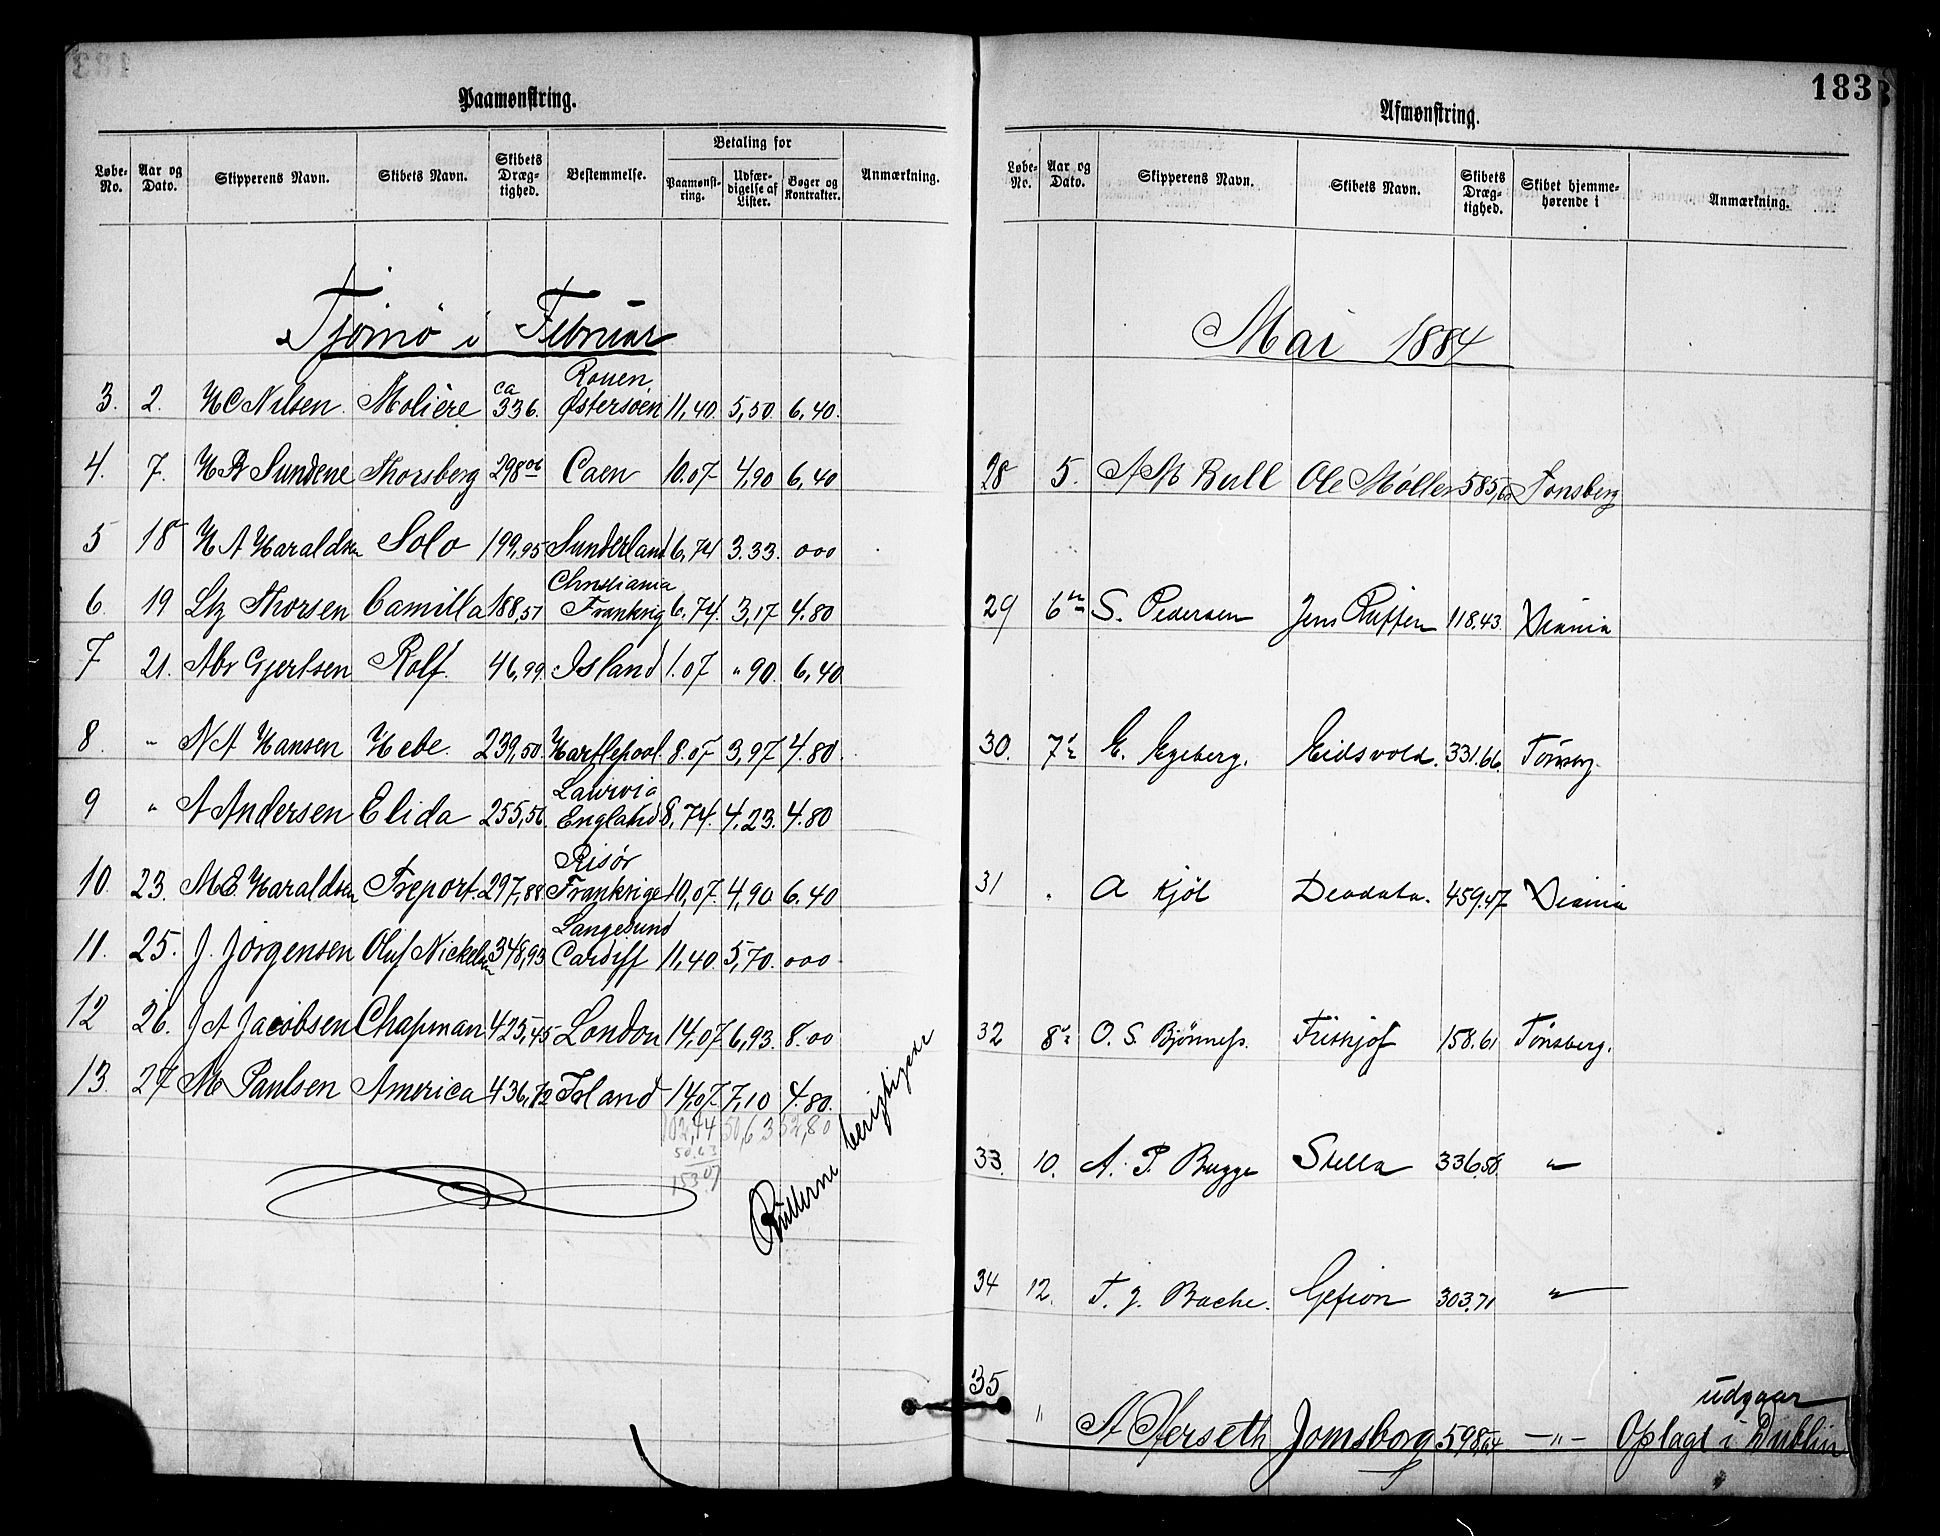 Paamønstring.
Løbe-No. Aar og Dato. Skipperens Navn. Skibets Navn. Skibets Dræg-tighed. Bestemmelse. Betaling for Anmærkning.
Paamønst-ring. Udfær-digelse af Lister. Bøger og Kontrakter.
Tjømø i Februar
3. 2. H C Nilsen. Moliére ca 336. Rouen, Østersøen 11,40. 5,50. 6,40.
4. 7. H B Sundene Thorsberg 298 06 Caen 10.07 4,90 6,40
5 18 H A Haraldsen Solo 199,95 Sunderland 6,74 3.33. 000
6. 19 Ltz Thorsen Camilla 188,57 Christiania Frankrig 6,74. 3,17 4.80
7 21. Abr Gjertsen Rolf. 46,99 Island 1.07 " 90. 6,40
8. " N A Hansen Hebe. 239,50. Hartlepool. 8.07 3,97 4.80.
9 " A Andersen Elida 255,56. Laurvig England 8,74. 4.23. 4.80
10. 23. M E Haraldsen Treport. 297,88 Risør Frankrige 10,07. 4,90 6.40
11. 25. J. Jørgensen Oluf Nickelsen 348,93 Langesund Cardiff 11,40. 5,70. 000
12 26. J A Jacobsen Chapman 425,45 London 14,07 6,93. 8.00
13. 27 M Paulsen America 436,72 Island 14,07. 7,10 4.80.
102,44 50,63 52,80
50.63
153.07
Rullerne berigtigene
183
Afmønstring.
Løbe-No. Aar og Dato. Skipperens Navn. Skibets Navn. Skibets Dræg-tighed. Skibet hjemme-hørende i Anmærkning.
Mai 1884
28 5. A M Bull Ole Møller 585,60 Tønsberg
29 6 S. Pedersen Jens 118.43.
30. 7 E. Egeberg. Eidsvold. 331.66. Tønsbrg.
31 " A Kjøl Deodata. 459.47
32 8 O. S. Bjønness. Frithjof 158.61 Tønsberg.
33. 10. A. P. Bugge Stella 336,58. "
34 12. T. J. Bache. Gefion 303,71 "
35 " A Aerseth Jomsborg 598,64 — " — udgaar
Oplagt i Dublin